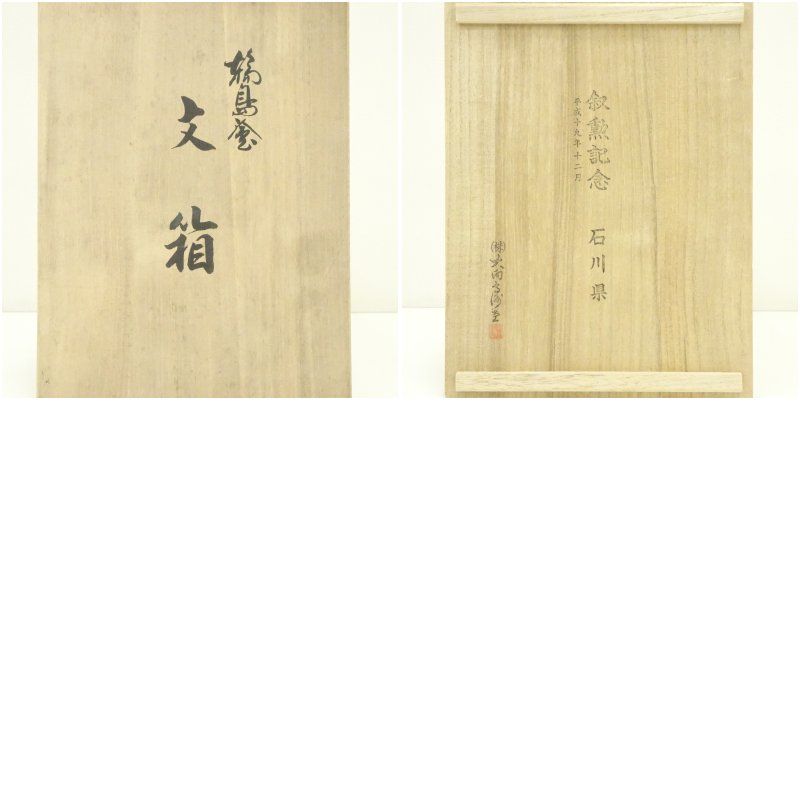 輪島塗
文箱
叙勲記念 石川県
平成十九年十二月
㈱大向高洲堂